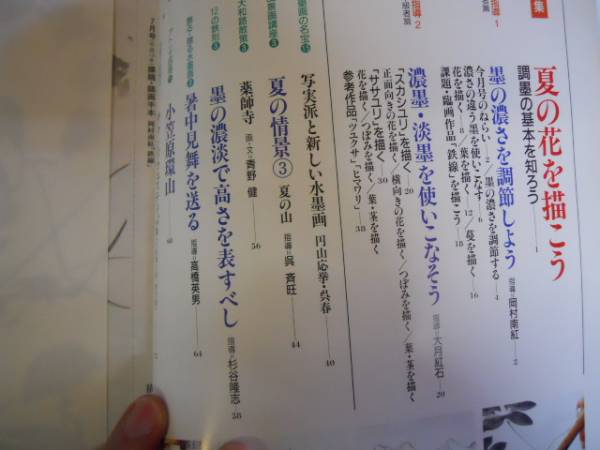 集
夏の花を描こう
調墨の基本を知ろう
指導 1
墨の濃さを調節しよう 指導・岡村南紅 2
今月号のねらい 2/墨の濃さを調節する 4
濃さの違う墨を使いこなす 6
花を描く 8/葉を描く 12/蔓を描く 16
課題・臨画作品「鉄線」を描こう 18
指導 2
濃墨・淡墨を使いこなそう 指導・大月紅石 20
「スカシユリ」を描く 20
正面向きの花を描く/横向きの花を描く/つぼみを描く/葉・茎を描く
「ササユリ」を描く 30
花を描く/つぼみを描く/葉・茎を描く
参考作品「ツユクサ」「ヒマワリ」 38
画の名宝⑮
写実派と新しい水墨画 円山応挙・呉春 40
景画講座③
夏の情景③ 夏の山 指導・呉 斉旺 44
大和路散策③
薬師寺 画・文 青野 健 56
12の鉄則③
墨の濃淡で高さを表すべし 指導・杉谷隆志 58
暑中見舞を送る 指導・高橋英男 64
小笠原環山
7月号